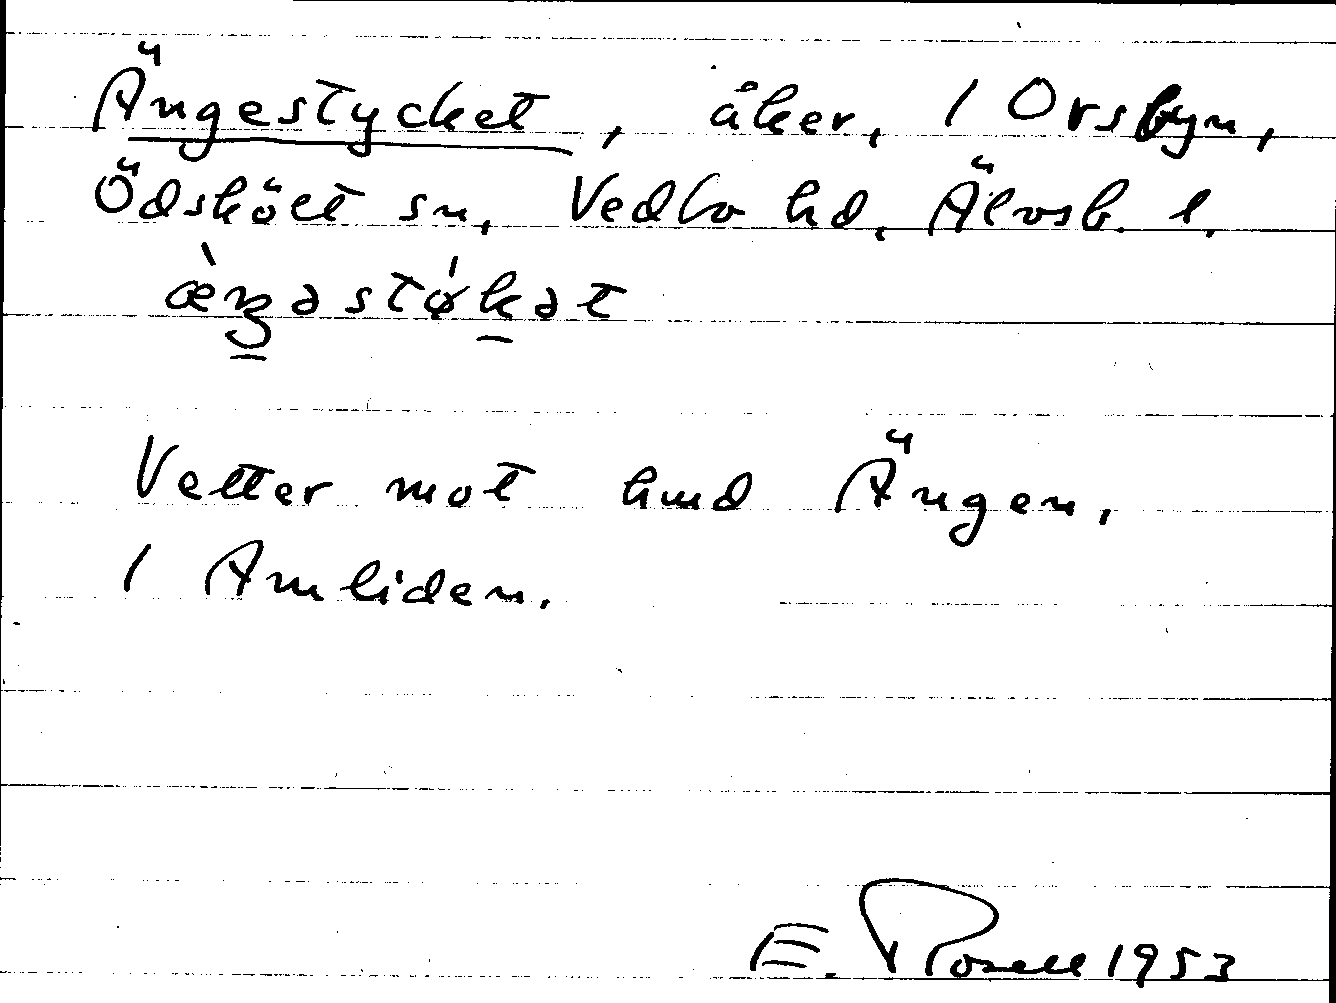 Ängestycket, åker, 1 Orsbyn,
Ödskölt sn, Vedbo hd, Älvsb. l.
æ̀ŋəstǿkət
Vetter mot hmd Ängen,
1 Amliden.
E. Rosell 1953